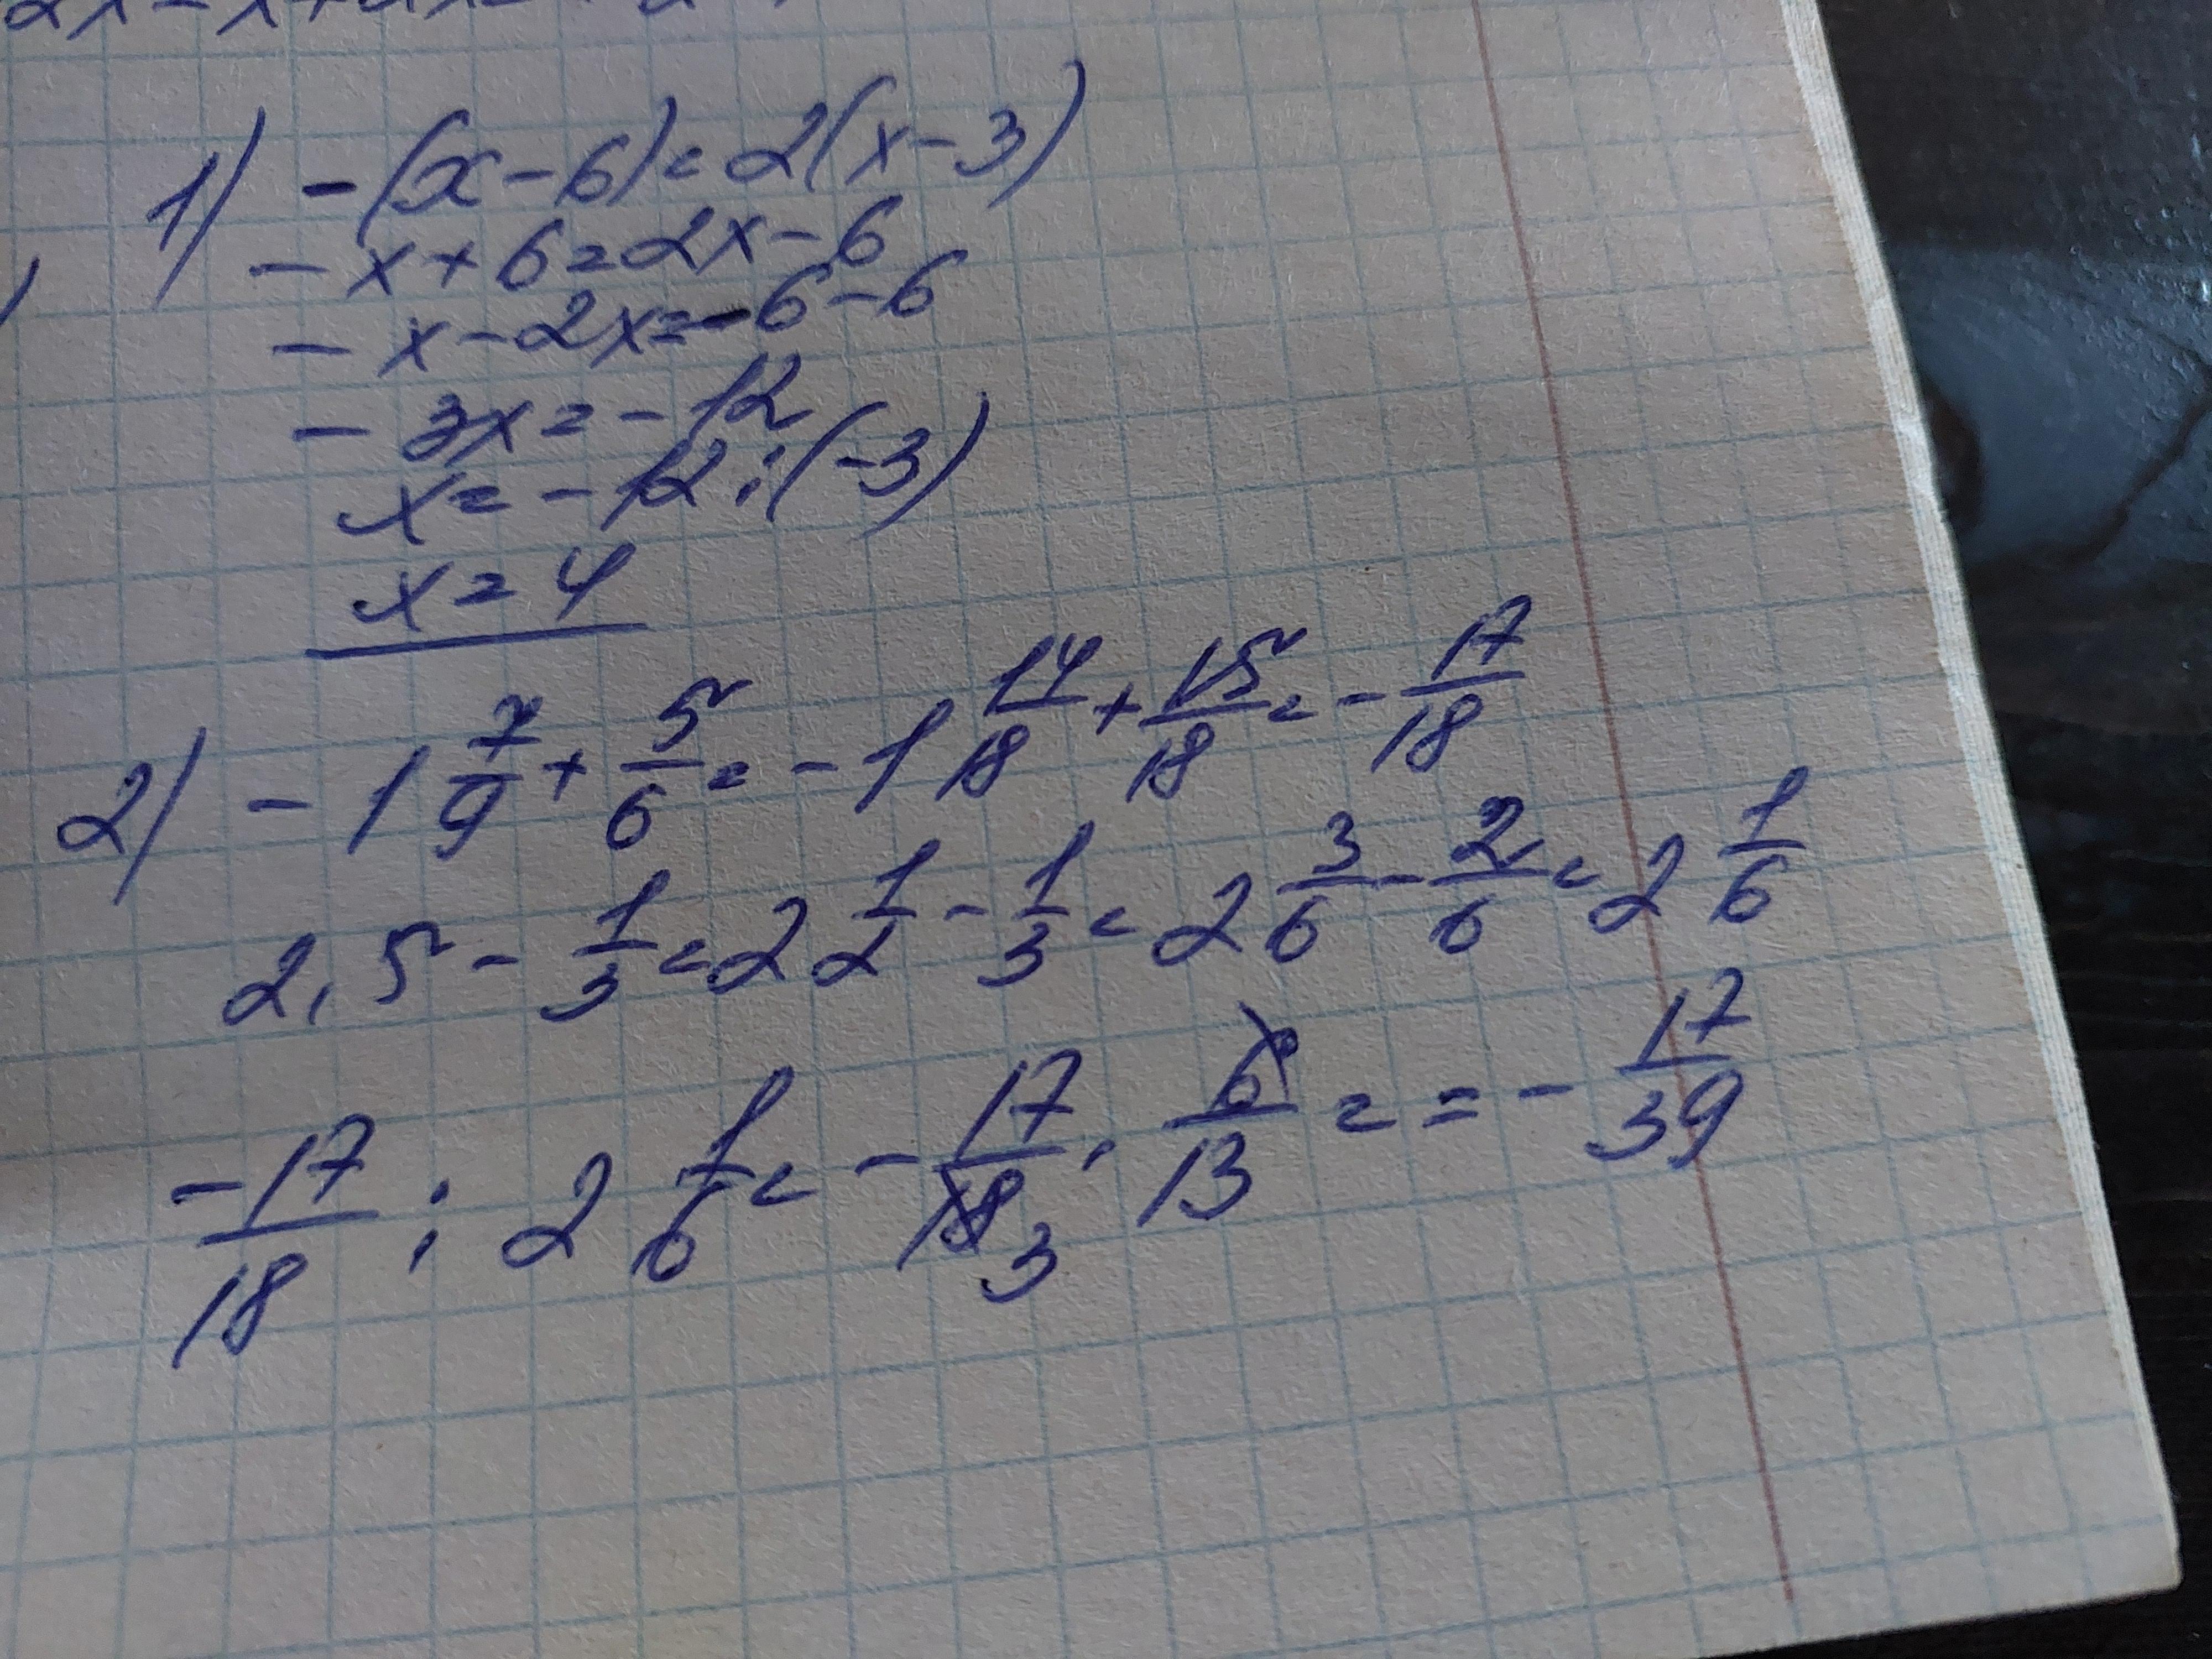 1) -(x-6)=2(x-3)
-x+6=2x-6
-x-2x=-6-6
-3x=-12
x=-12:(-3)
x=4
2) -1 7/9 + 5/6 = -1 14/18 + 15/18 = - 17/18
2,5 - 1/3 = 2 1/2 - 1/3 = 2 3/6 - 2/6 = 2 1/6
-17/18 : 2 1/6 = - 17/18 3 · 6/13 = = - 17/39